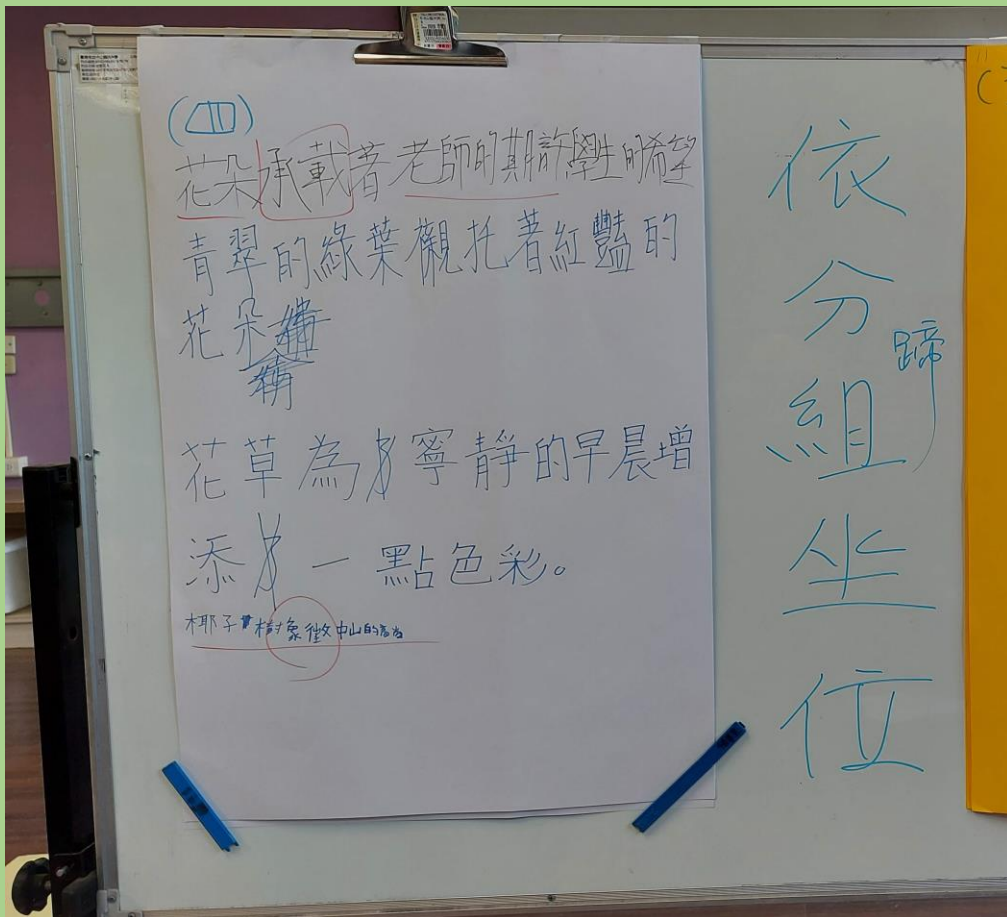 (四)
花朵承載著老師的期許學生的希望
青翠的綠葉襯托著紅豔的
花朵
花草為寧靜的早晨增
添一點色彩。
椰子樹象徵中山的高尚
依分組坐位
蹄